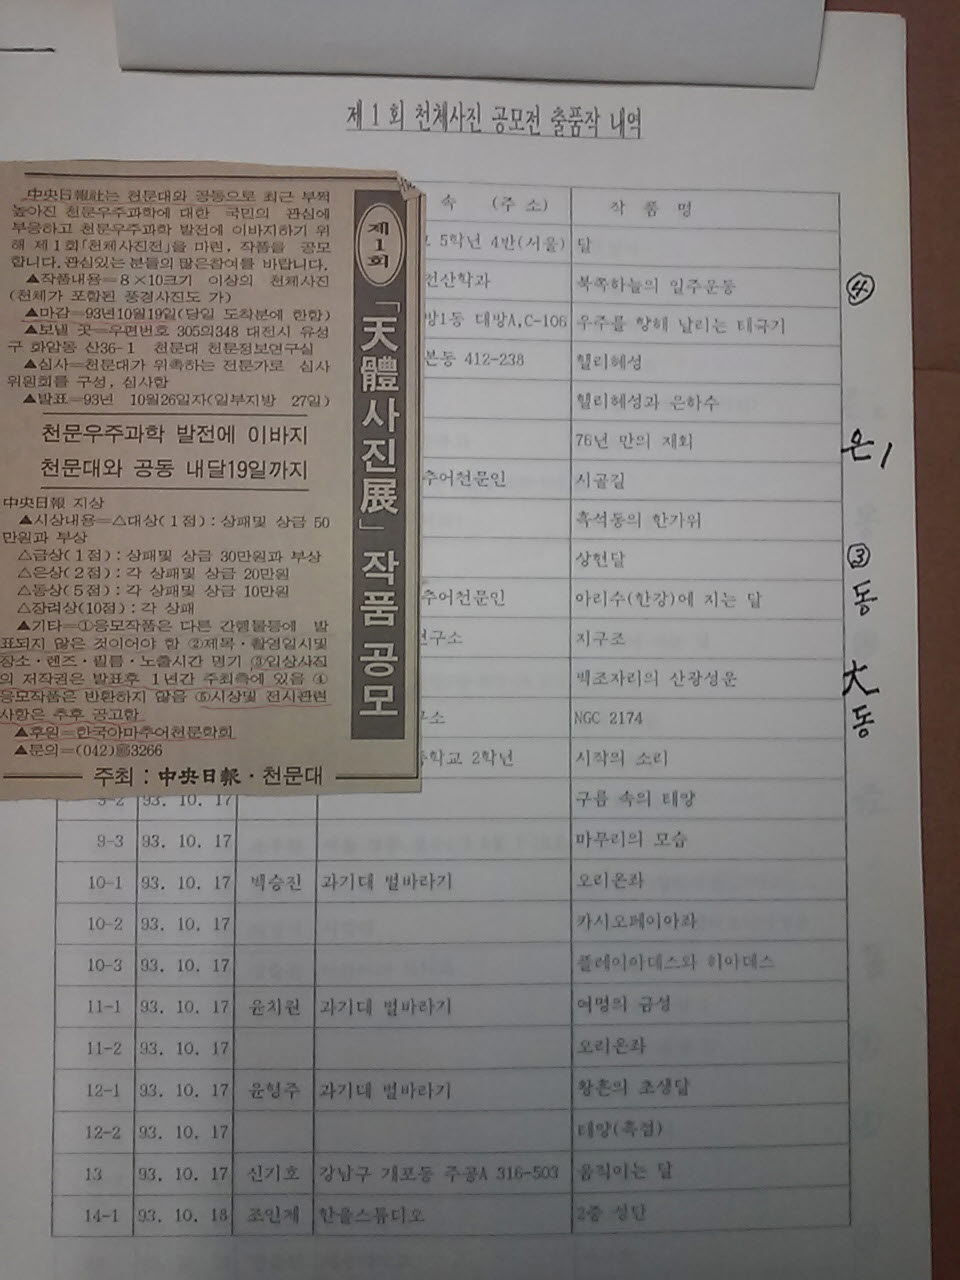 제 1 회 천체사진 공모전 출품작 내역
中央日報社는 천문대와 공동으로 최근 부쩍
높아진 천문우주과학에 대한 국민의 관심에
부응하고 천문우주과학 발전에 이바지하기 위
해 제1회「천체사진전」을 마련, 작품을 공모
합니다. 관심있는 분들의 많은참여를 바랍니다.
▲작품내용=8×10크기 이상의 천체사진
(천체가 포함된 풍경사진도 가)
▲마감=93년10월19일(당일 도착분에 한함)
▲보낼 곳=우편번호 305의348 대전시 유성
구 화암동 산36-1 천문대 천문정보연구실
▲심사=천문대가 위촉하는 전문가로 심사
위원회를 구성, 심사함
▲발표=93년 10월26일자(일부지방 27일)
천문우주과학 발전에 이바지
천문대와 공동 내달19일까지
中央日報 지상
▲시상내용=△대상(1점): 상패및 상금 50
만원과 부상
△금상(1점): 상패및 상금 30만원과 부상
△은상(2점): 각 상패및 상금 20만원
△동상(5점): 각 상패및 상금 10만원
△장려상(10점): 각 상패
▲기타=①응모작품은 다른 간행물등에 발
표되지 않은 것이어야 함 ②제목·촬영일시및
장소·렌즈·필름·노출시간 명기 ③입상사진
의 저작권은 발표후 1년간 주최측에 있음 ④
응모작품은 반환하지 않음 ⑤시상및 전시관련
사항은 추후 공고함
▲후원=한국아마추어천문학회
▲문의=(042) 3266
주최: 中央日報·천문대
제1회
「天體사진展」 작품 공모
속 (주 소) 작 품 명
5학년 4반(서울) 달
전산학과 북쪽하늘의 일주운동 ④
방1동 대방A.C-106 우주를 향해 날리는 태극기
본동 412-238 헬리혜성
헬리혜성과 은하수
76년 만의 재회 은1
추어천문인 시골길
흑석동의 한가위
상현달 ③
추어천문인 아리수(한강)에 지는 달 동
연구소 지구조
백조자리의 산광성운 大
구소 NGC 2174 동
등학교 2학년 시작의 소리
9-2 93. 10. 17 구름 속의 태양
9-3 93. 10. 17 마무리의 모습
10-1 93. 10. 17 백승진 과기대 별바라기 오리온좌
10-2 93. 10. 17 카시오페이아좌
10-3 93. 10. 17 플레이아데스와 히아데스
11-1 93. 10. 17 윤치원 과기대 별바라기 여명의 금성
11-2 93. 10. 17 오리온좌
12-1 93. 10. 17 윤형주 과기대 별바라기 황혼의 초생달
12-2 93. 10. 17 태양(흑점)
13 93. 10. 17 신기호 강남구 개포동 주공A 316-503 움직이는 달
14-1 93. 10. 18 조인제 한울스튜디오 2중 성단